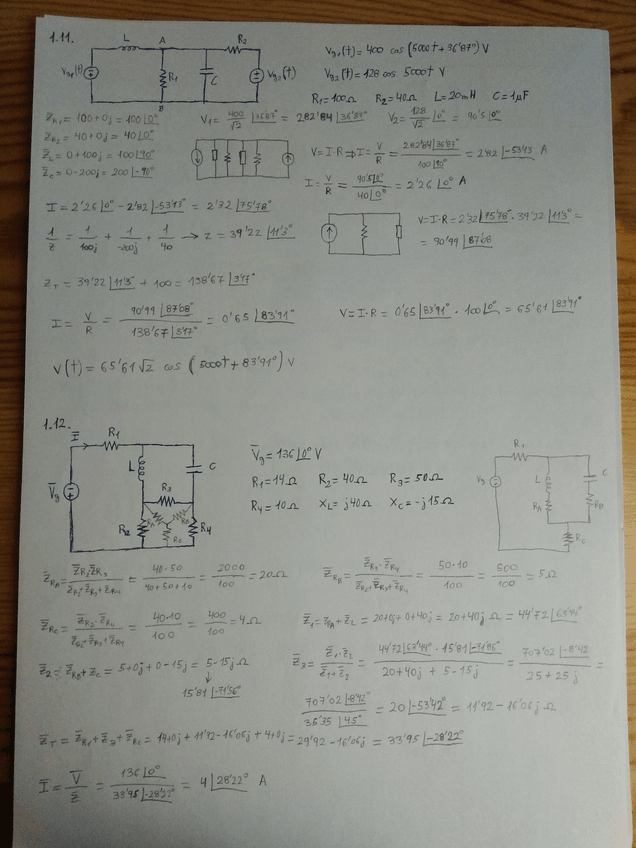 1.11.
L A R2
Vg1(t) R1 C Vg2(t)
B
Vg1(t) = 400 cos (5000t + 36'87°) V
Vg2(t) = 128 cos 5000t V
R1 = 100Ω R2 = 40Ω L = 20mH C = 1μF
Z̄R1 = 100+0j = 100∠0°
Z̄R2 = 40+0j = 40∠0°
Z̄L = 0+100j = 100∠90°
Z̄C = 0-200j = 200∠-90°
V1 = 400/√2 ∠36'87° = 282'84∠36'87° V2 = 128/√2 ∠0° = 90'5∠0°
V = I·R ⇒ I = V/R = 282'84∠36'87°/100∠90° = 2'82∠-53'13 A
I = V/R = 90'5∠0°/40∠0° = 2'26∠0° A
I = 2'26∠0° - 2'82∠-53'13° = 2'32∠75'78°
1/Z = 1/100j + 1/-200j + 1/40 → Z = 39'22∠11'3°
V = I·R = 2'32∠75'78° · 39'22∠11'3° =
= 90'99∠87'08
ZT = 39'22∠11'3° + 100 = 138'67∠3'17°
I = V/R = 90'99∠87'08°/138'67∠3'17° = 0'65∠83'91°
V = I·R = 0'65∠83'91° · 100∠0° = 65'61∠83'91°
V(t) = 65'61√2 cos (5000t + 83'91°) V
1.12.
Ī R1
L C
V̄g R3
RA RB
R2 RC R4
V̄g = 136∠0° V
R1 = 14Ω R2 = 40Ω R3 = 50Ω
R4 = 10Ω XL = j40Ω XC = -j15Ω
R1
Vg L C
RA RB
RC
Z̄RA = Z̄R2·Z̄R3/Z̄R2+Z̄R3+Z̄R4 = 40·50/40+50+10 = 2000/100 = 20Ω
Z̄RB = Z̄R3·Z̄R4/Z̄R2+Z̄R3+Z̄R4 = 50·10/100 = 500/100 = 5Ω
Z̄RC = Z̄R2·Z̄R4/Z̄R2+Z̄R3+Z̄R4 = 40·10/100 = 400/100 = 4Ω
Z̄1 = Z̄RA + Z̄L = 20+0j + 0+40j = 20+40j Ω = 44'72∠63'44°
Z̄2 = Z̄RB + Z̄C = 5+0j + 0-15j = 5-15j Ω
15'81∠-71'56°
Z̄3 = Z̄1·Z̄2/Z̄1+Z̄2 = 44'72∠63'44° · 15'81∠-71'86°/20+40j + 5-15j = 707'02∠-8'42/25+25j =
707'02∠8'42°/35'35∠45° = 20∠-53'42° = 11'92-16'06j Ω
Z̄T = Z̄R1 + Z̄3 + Z̄RC = 14+0j + 11'92-16'06j + 4+0j = 29'92-16'06j = 33'95∠-28'22°
Ī = V̄/Z̄ = 136∠0°/33'95∠-28'22° = 4∠28'22° A